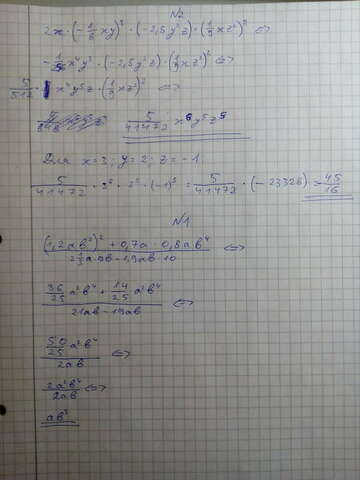 №2
2x · (-1/8 xy)³ · (-2,5y²z) · (1/9 xz²)² <=>
x⁴y³ · (-2,5y²z) · (1/9 xz²)² <=>
5/512 · x⁴y⁵z · (1/9 xz²)² <=>
5/41472 x⁶y⁵z⁵
Для x=3, y=2, z=-1
5/41472 · 3⁶ · 2⁵ · (-1)⁵ = 5/41472 · (-23328) = -45/16
№1
(1,2ab²)² + 0,7a · 0,8ab⁴ / 2 1/3 a · 9b - 1,9ab · 10 <=>
36/25 a²b⁴ + 14/25 a²b⁴ / 21ab - 19ab <=>
50/25 a²b⁴ / 2ab <=>
2a²b⁴ / 2ab <=>
ab³